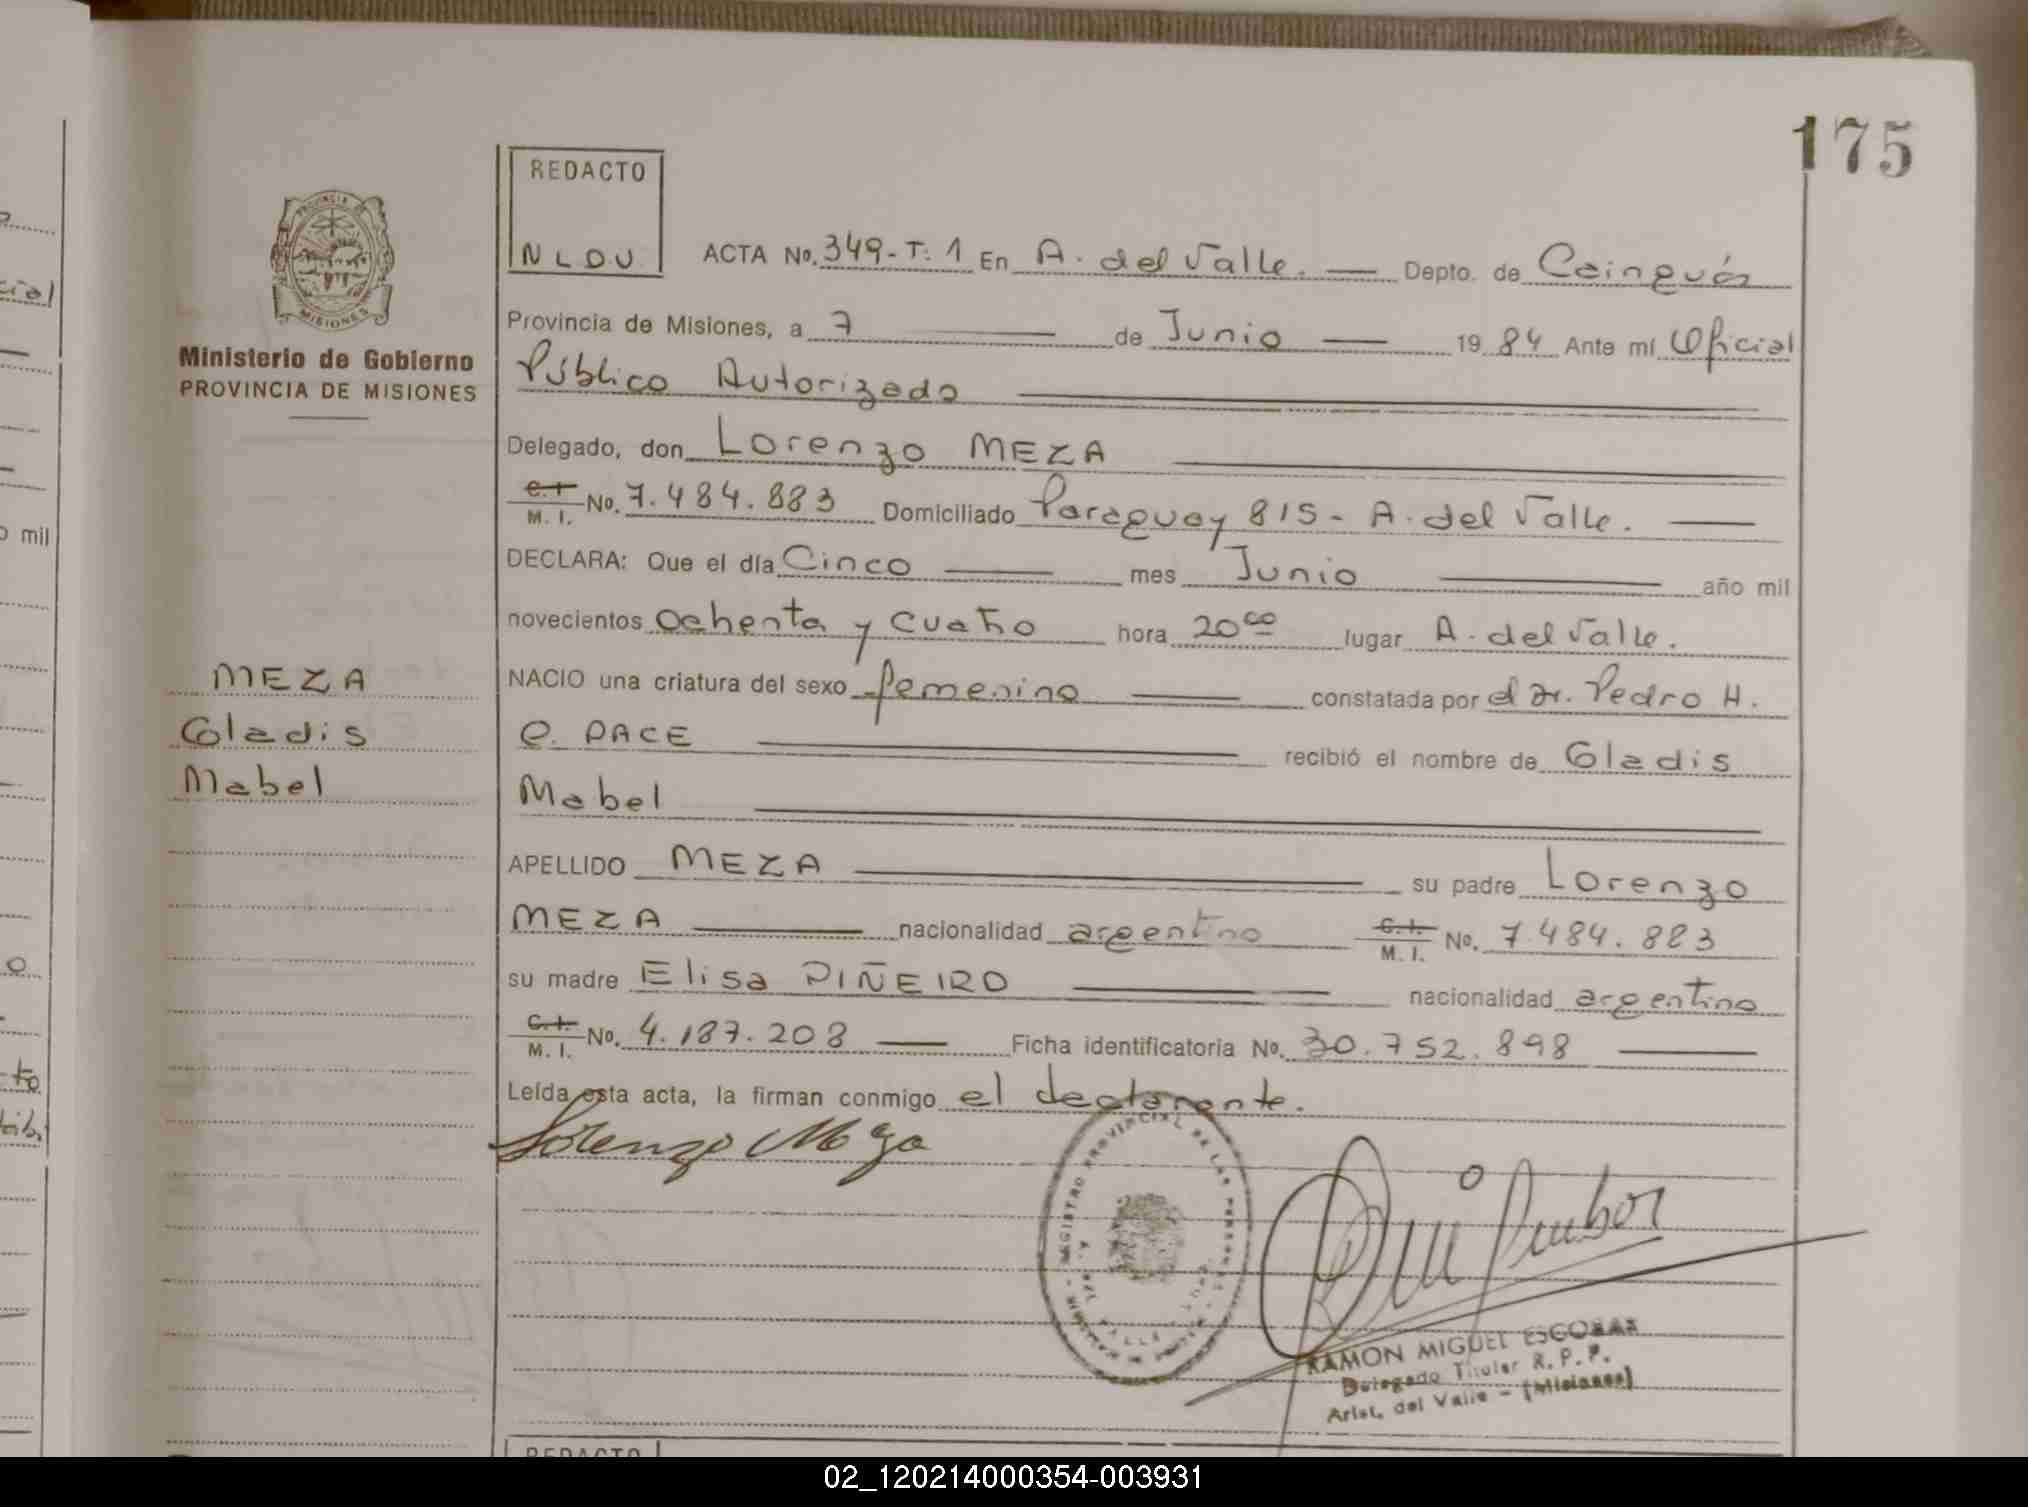 175
REDACTO
N L D U.
ACTA No. 349-T: 1 En A. del Valle. — Depto. de Cainguás
Provincia de Misiones, a 7 — de Junio — 19 84 Ante mí Oficial
Público Autorizado
Delegado, don Lorenzo MEZA
C.I. M. I. No. 7.484.883 Domiciliado Paraguay 815 - A. del Valle. —
DECLARA: Que el día Cinco — mes Junio — año mil
novecientos Ochenta y cuatro hora 20 00 lugar A. del Valle.
NACIO una criatura del sexo femenino — constatada por el Dr. Pedro H.
C. PACE — recibió el nombre de Gladis
Mabel
APELLIDO MEZA — su padre Lorenzo
MEZA — nacionalidad argentino C.I. M. I. No. 7.484.883
su madre Elisa PIÑEIRO — nacionalidad argentina
C.I. M. I. No. 4.187.208 — Ficha identificatoria No. 30.752.898 —
Leída esta acta, la firman conmigo el declarante.
Lorenzo Meza
RAMON MIGUEL ESCOBAR
Delegado Titular R. P. P.
Arist. del Valle - (Misiones)
PROVINCIA DE
MISIONES
Ministerio de Gobierno
PROVINCIA DE MISIONES
MEZA
Gladis
Mabel
REGISTRO PROVINCIAL DE LAS PERSONAS
REDACTO
cial
o mil
02_120214000354-003931